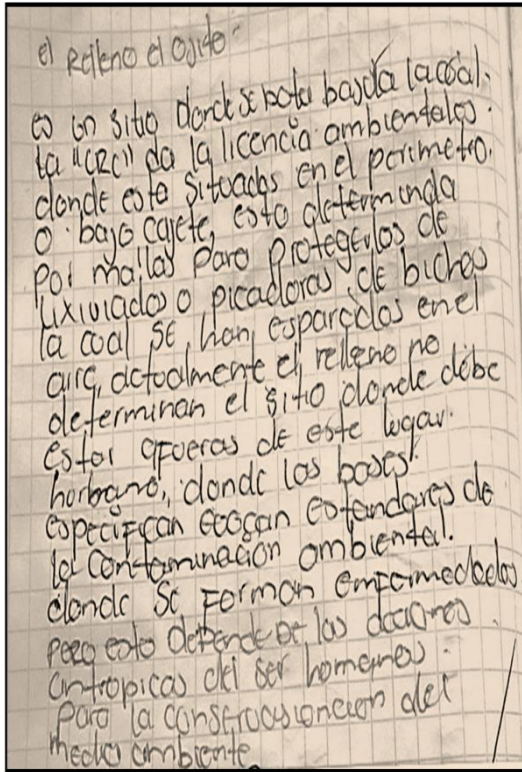 el Relleno el Ojido
es un sitio donde se bota basura la cual.
la "CRC" da la licencia ambientales.
donde este situados en el perimetro.
o bajo cajete, esto determinda
por mallas para protegerlos de
lixiviados o picadoras de bichos
la cual se han esparcidos en el
aire, actualmente el relleno no
determinan el sitio donde debe
estar afueras de este lugar.
horbano, donde las bases.
especifican estandares de
la contaminación ambiental.
donde se forman enfermedades
pero esto depende de las acciones.
antropicas del ser
para la del
medio ambiente